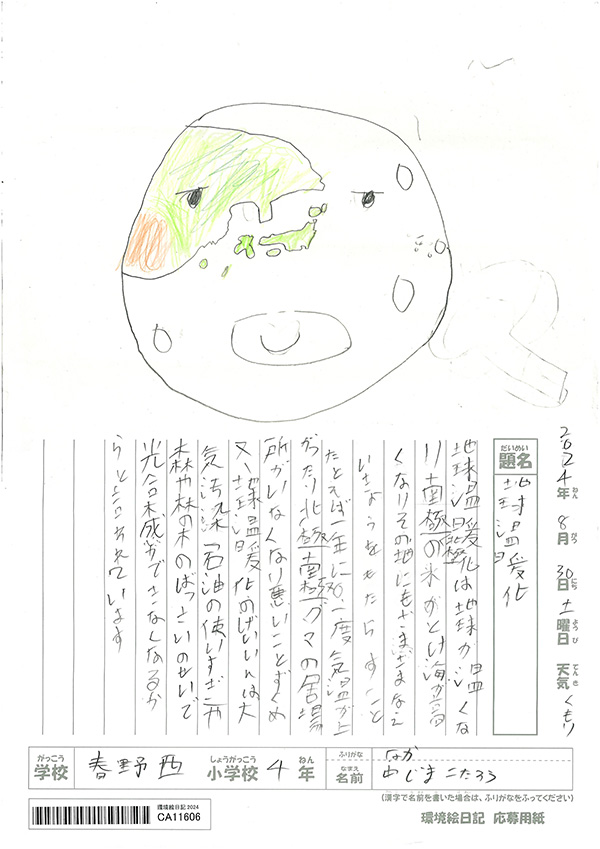 2024年 8月 30日 土曜日 天気 くもり
ねん がつ にち ようび てんき
だいめい
題名
地球温暖化
地球温暖化は地球が温
くな
り南極の氷がとけ海が高
くなりその他にもさまざまなえ
いきょうをもたらすこと
たとえば一年に
度気温が上
がったり北極南極グマの居場
所がいなくなり悪いことずくめ
又、地球温暖化のげんいんは大
気汚染「石油の使いすぎ」や
森や林の木のばっさいのせいで
光合成ができなくなるか
らと言われています
がっこう
学校 春野西
しょうがっこう
小学校 4年
ねん
ふりがな
なまえ
名前
じまこたろう
(漢字で名前を書いた場合は、ふりがなをふってください)
環境絵日記2024
CA11606
環境絵日記 応募用紙